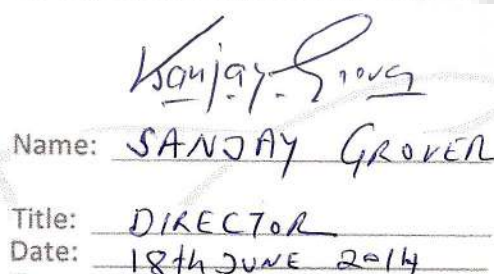 Sanjay Grover
Name: SANJAY GROVER
Title: DIRECTOR
Date: 18th JUNE 2014